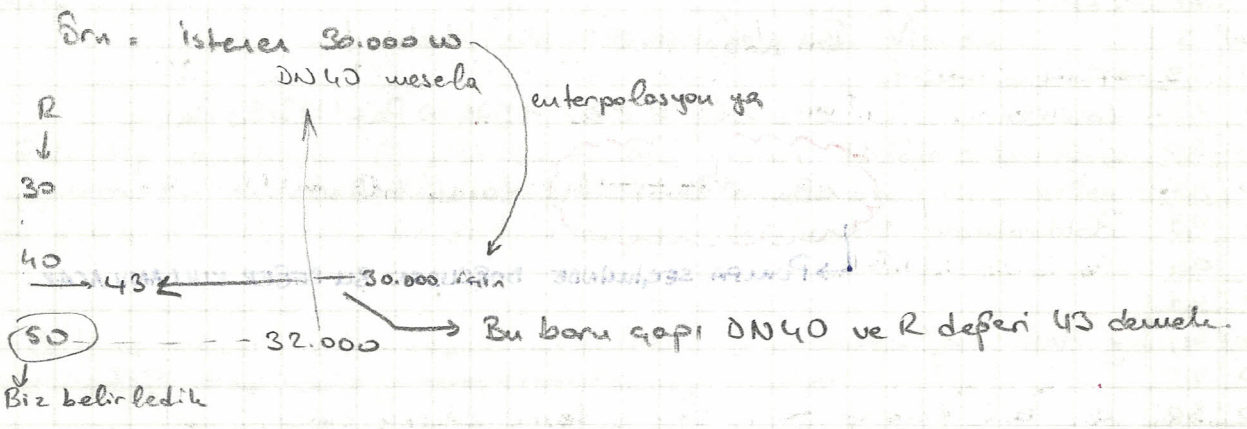 Örn = istenen 30.000 W
DN40 mesela
enterpolasyon ya
R
30
40
43
30.000 için
50
32.000
Bu boru çapı DN40 ve R değeri 43 demek.
Biz belirledik